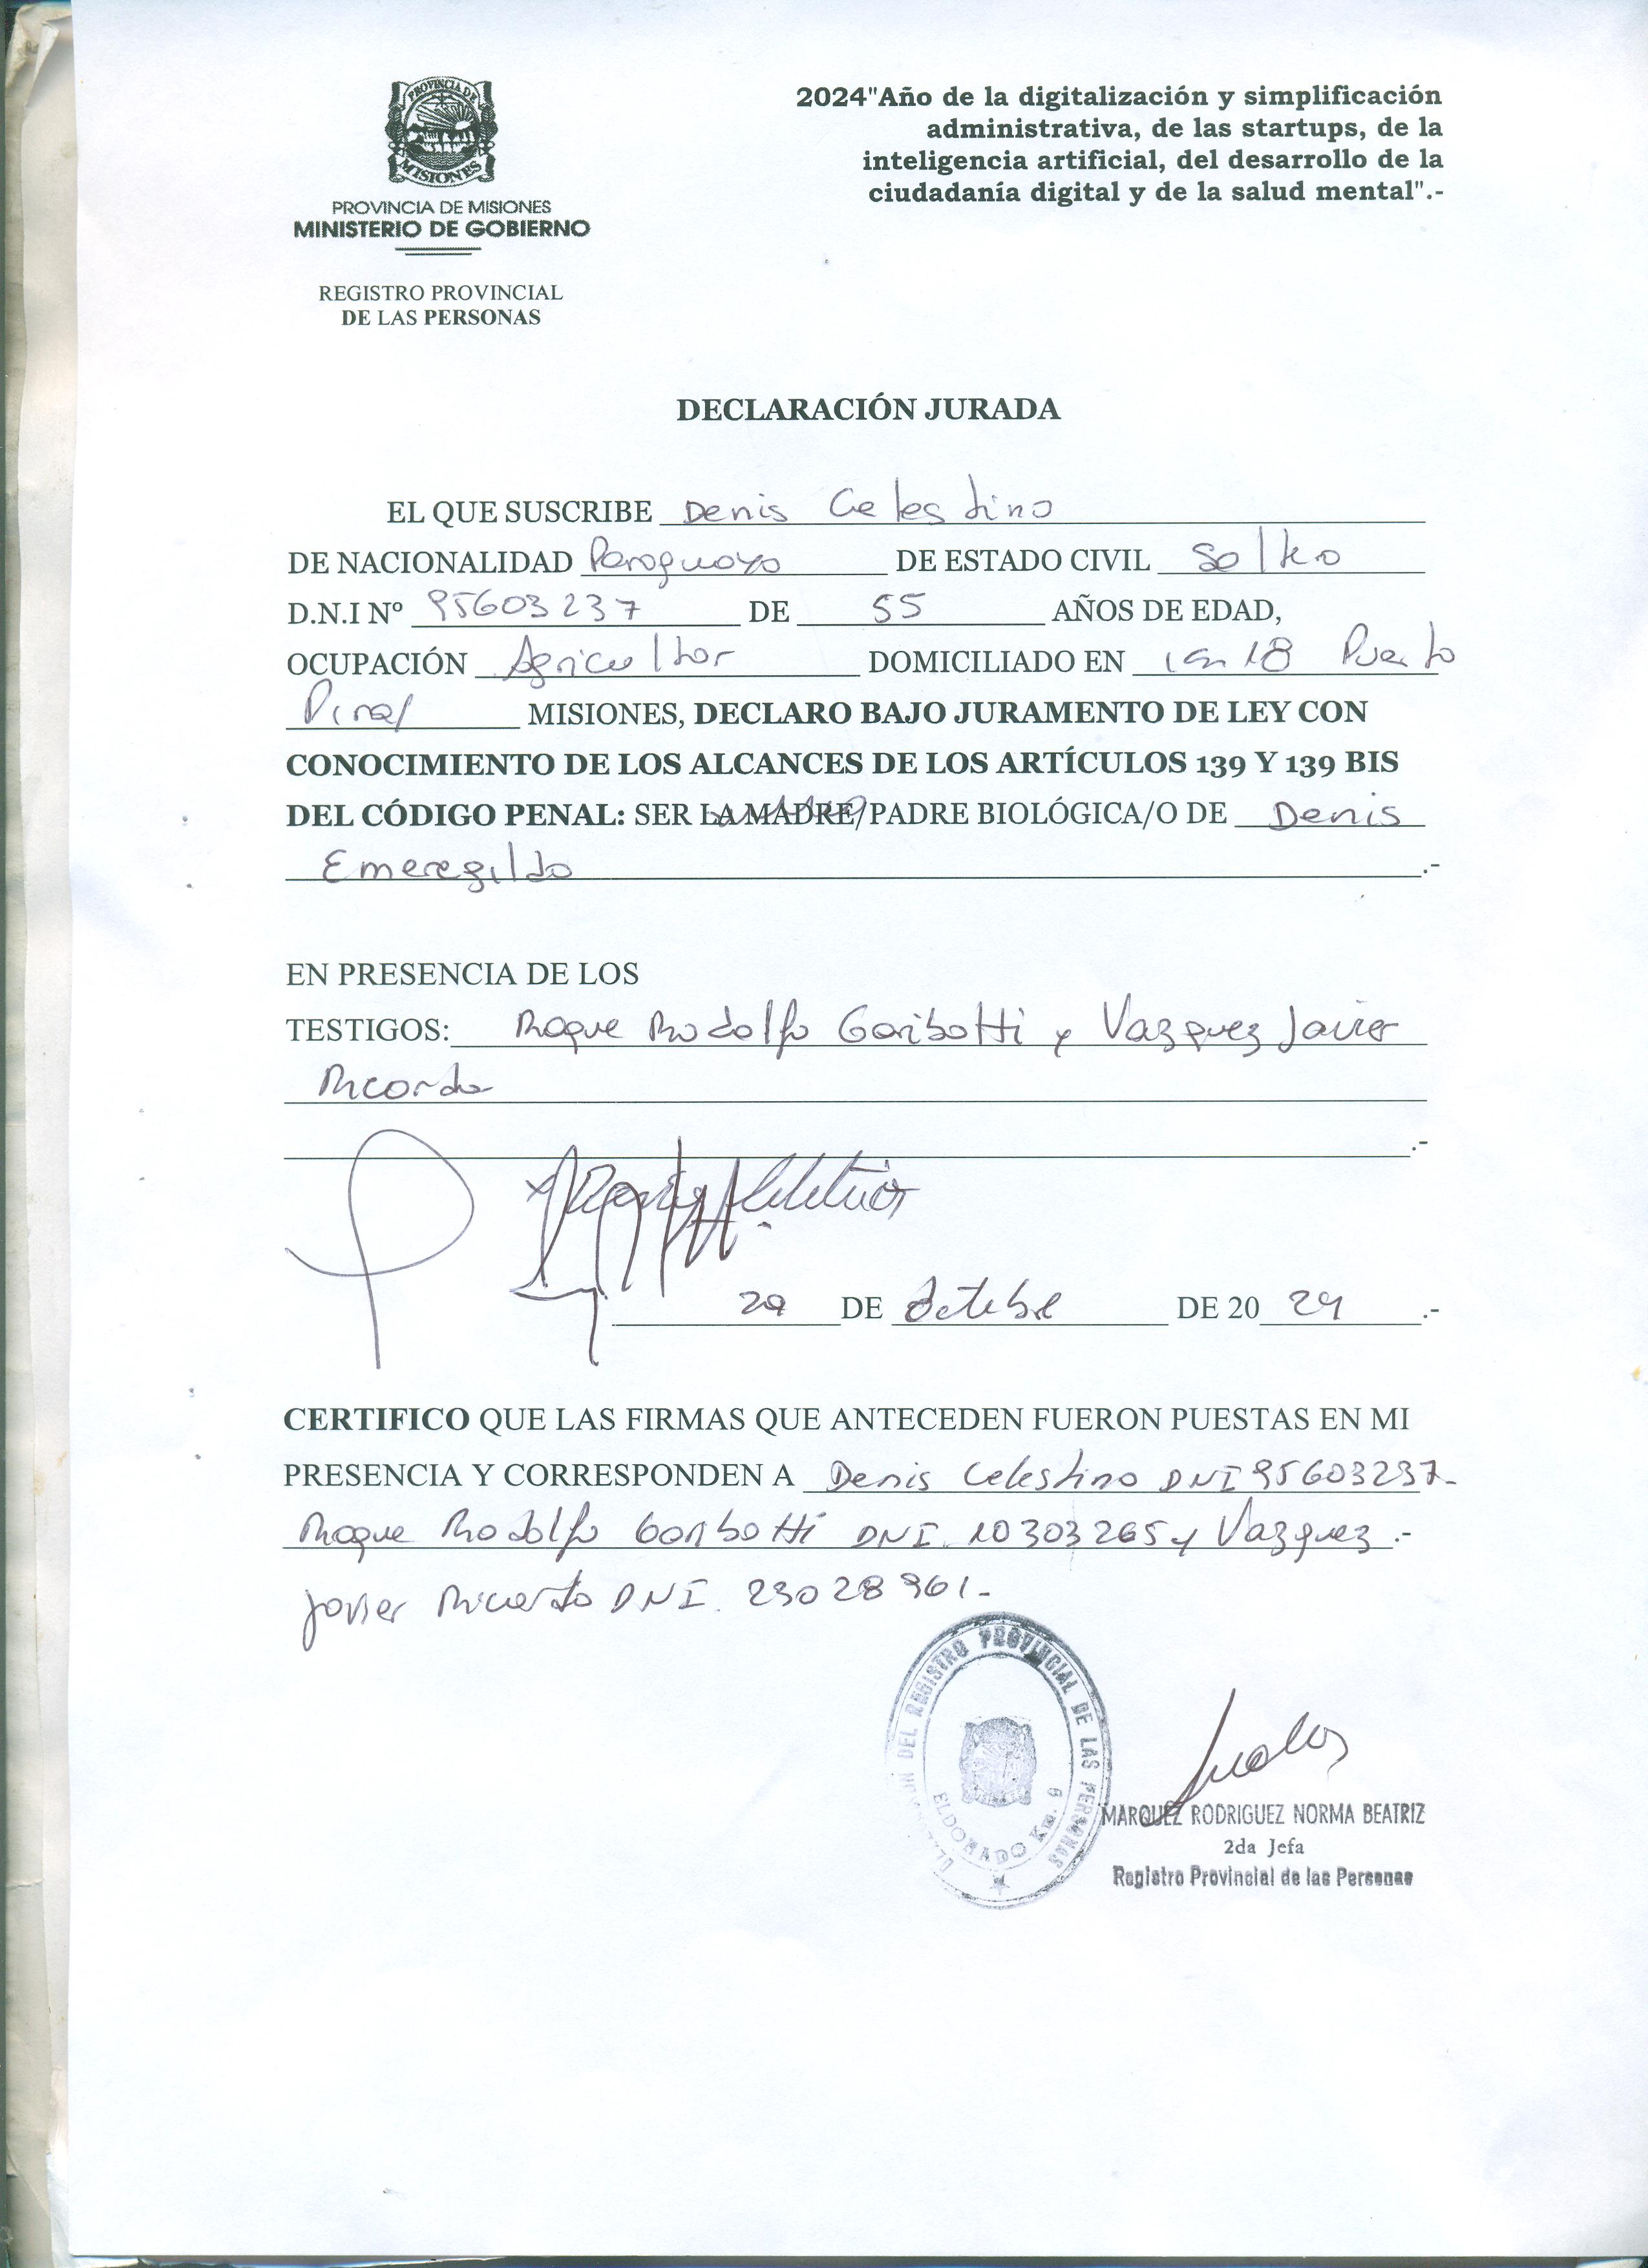 PROVINCIA DE
MISIONES
PROVINCIA DE MISIONES
MINISTERIO DE GOBIERNO
REGISTRO PROVINCIAL
DE LAS PERSONAS
2024"Año de la digitalización y simplificación
administrativa, de las startups, de la
inteligencia artificial, del desarrollo de la
ciudadanía digital y de la salud mental".-
DECLARACIÓN JURADA
EL QUE SUSCRIBE Denis Celestino
DE NACIONALIDAD Paraguayo DE ESTADO CIVIL Soltero
D.N.I Nº 95603237 DE 55 AÑOS DE EDAD,
OCUPACIÓN Agricultor DOMICILIADO EN Km 18 Puerto
Pinal MISIONES, DECLARO BAJO JURAMENTO DE LEY CON
CONOCIMIENTO DE LOS ALCANCES DE LOS ARTÍCULOS 139 Y 139 BIS
DEL CÓDIGO PENAL: SER LA MADRE/PADRE BIOLÓGICA/O DE Denis
Emeregildo .-
EN PRESENCIA DE LOS
TESTIGOS: Roque Rodolfo Garibotti y Vazquez Javier
Ricardo
.-
29 DE Octubre DE 20 24 .-
CERTIFICO QUE LAS FIRMAS QUE ANTECEDEN FUERON PUESTAS EN MI
PRESENCIA Y CORRESPONDEN A Denis Celestino DNI 95603237-
Roque Rodolfo Garibotti DNI. 10303265 y Vazquez .-
Javier Ricardo DNI. 23028961-
DEL REGISTRO PROVINCIAL DE LAS PERSONAS
ELDORADO Km. 9
MARQUEZ RODRIGUEZ NORMA BEATRIZ
2da Jefa
Registro Provincial de las Personas